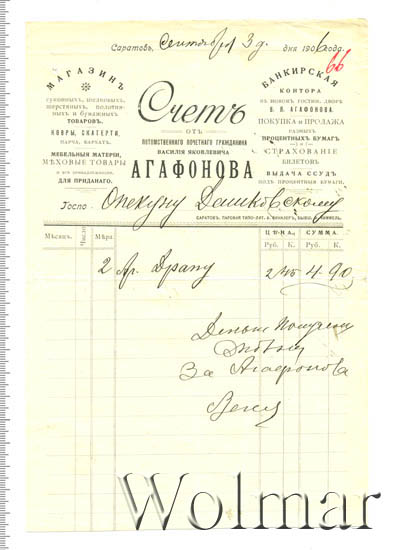 Саратовъ, Сентября 3 д. дня 1906 года.
66
МАГАЗИНЪ
суконныхъ, шелковыхъ,
шерстяныхъ, полотня-
ныхъ и бумажныхъ
ТОВАРОВЪ.
КОВРЫ, СКАТЕРТИ,
ПАРЧА, БАРХАТЪ.
МЕБЕЛЬНЫЯ МАТЕРІИ,
МѢХОВЫЕ ТОВАРЫ
ДЛЯ ПРИДАНАГО.
Счетъ
ОТЪ
ПОТОМСТВЕННАГО ПОЧЕТНАГО ГРАЖДАНИНА
ВАСИЛІЯ ЯКОВЛЕВИЧА
АГАФОНОВА
БАНКИРСКАЯ
КОНТОРА
ВЪ НОВОМЪ ГОСТИН. ДВОРѢ
В. Я. АГАФОНОВА.
ПОКУПКА И ПРОДАЖА
РАЗНЫХЪ
ПРОЦЕНТНЫХЪ БУМАГЪ
И
СТРАХОВАНІЕ
БИЛЕТОВЪ
ВЫДАЧА ССУДЪ
ПОДЪ ПРОЦЕНТНЫЯ БУМАГИ.
Госпо Опекуну Дашковскому
САРАТОВЪ. ПАРОВАЯ ТИПО-ЛИТ.
Мѣсяцъ. Число Мѣра ЦѢНА, СУММА.
Руб. К. Руб. К.
2 Ар. Драпу 2 45 4 90
Деньги Получены
За Агафонова
Wolmar